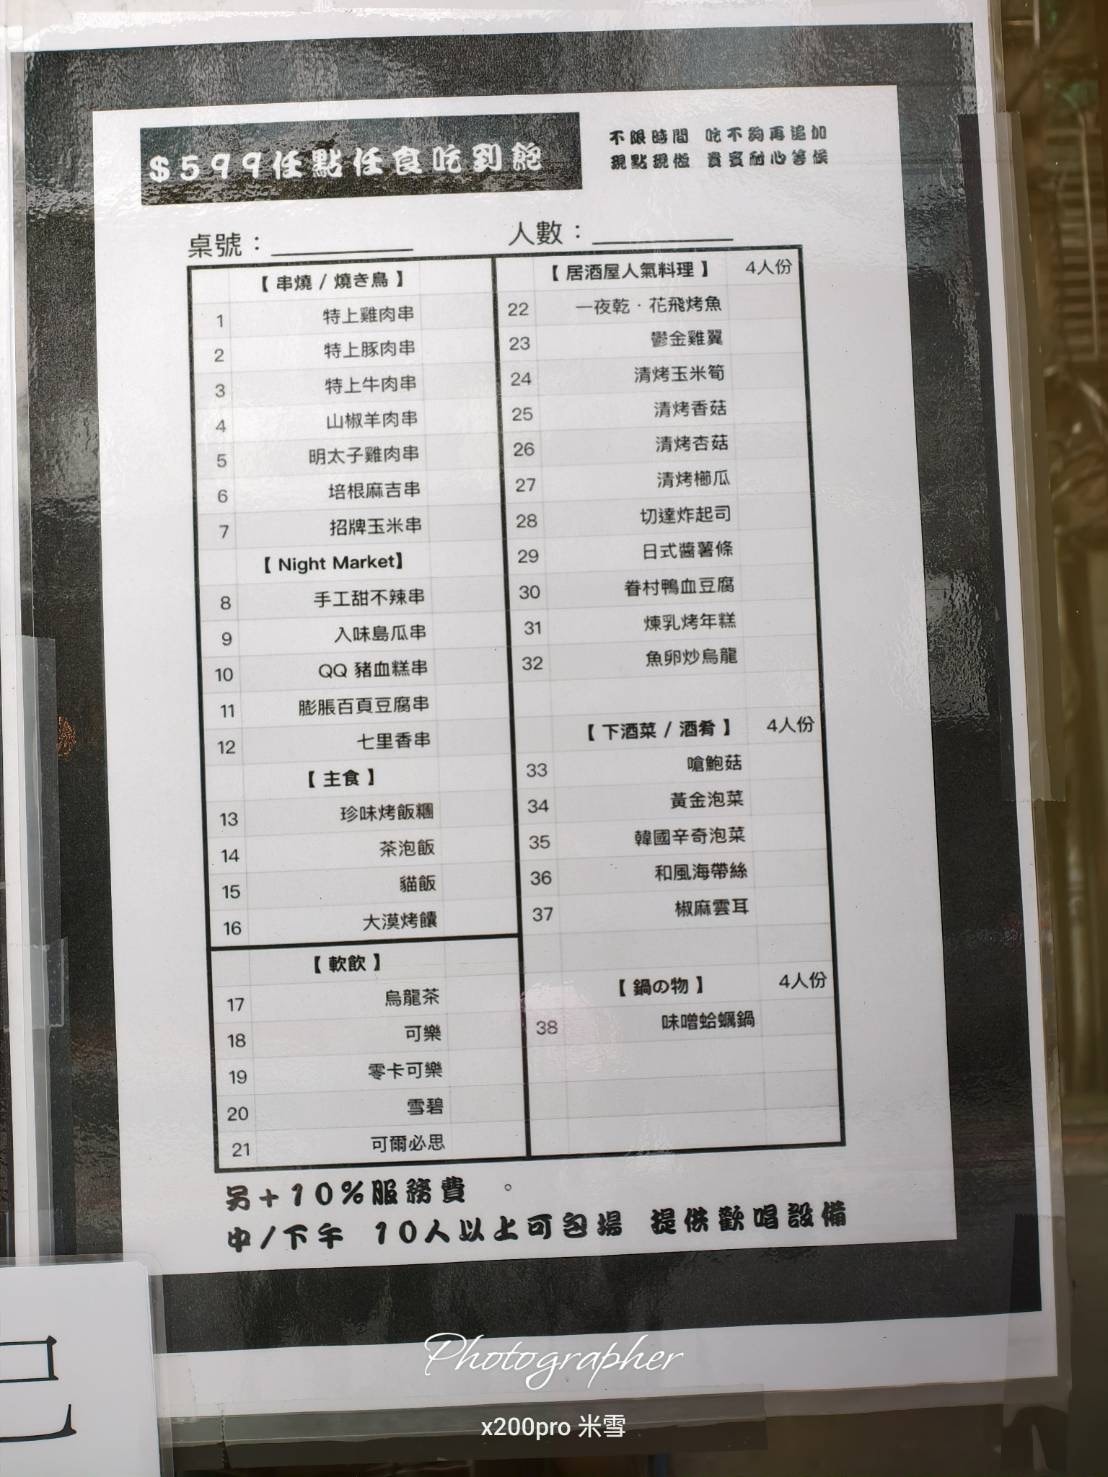 $599任點任食吃到飽
不限時間 吃不夠再追加
現點現做 貴賓耐心等候
桌號：
人數：
【 串燒 / 燒き鳥 】
1 特上雞肉串
2 特上豚肉串
3 特上牛肉串
4 山椒羊肉串
5 明太子雞肉串
6 培根麻吉串
7 招牌玉米串
【 Night Market】
8 手工甜不辣串
9 入味島瓜串
10 QQ 豬血糕串
11 膨脹百頁豆腐串
12 七里香串
【 主食 】
13 珍味烤飯糰
14 茶泡飯
15 貓飯
16 大漠烤饢
【 軟飲 】
17 烏龍茶
18 可樂
19 零卡可樂
20 雪碧
21 可爾必思
【 居酒屋人氣料理 】 4人份
22 一夜乾 · 花飛烤魚
23 鬱金雞翼
24 清烤玉米筍
25 清烤香菇
26 清烤杏菇
27 清烤櫛瓜
28 切達炸起司
29 日式醬薯條
30 眷村鴨血豆腐
31 煉乳烤年糕
32 魚卵炒烏龍
【 下酒菜 / 酒肴 】 4人份
33 嗆鮑菇
34 黃金泡菜
35 韓國辛奇泡菜
36 和風海帶絲
37 椒麻雲耳
【 鍋の物 】 4人份
38 味噌蛤蠣鍋
另+10%服務費 。
中/下午 10人以上可包場 提供歡唱設備
Photographer
x200pro 米雪